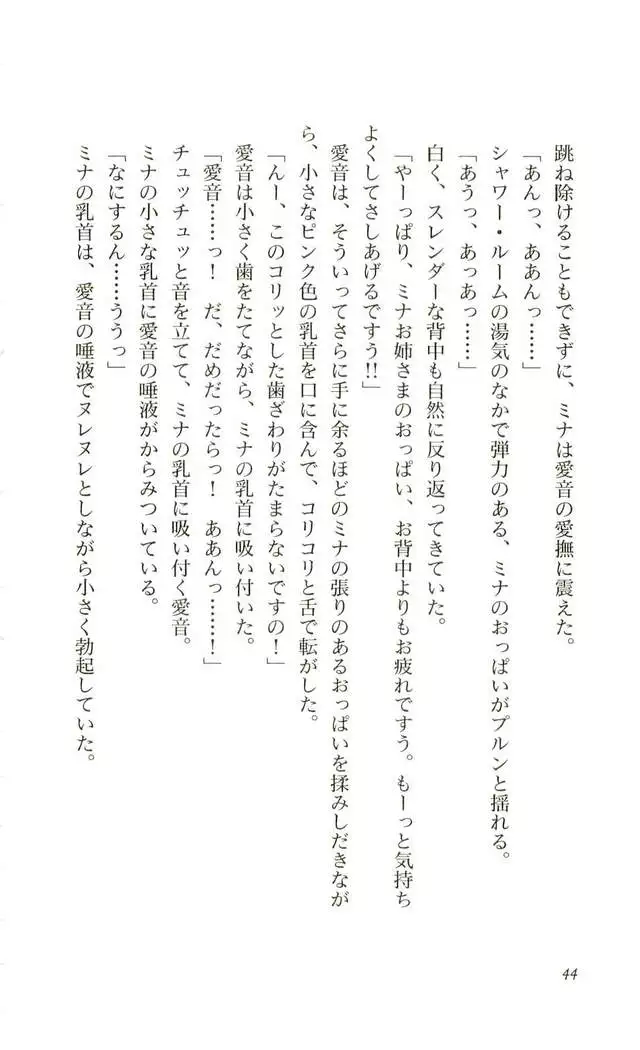 跳ね除けることもできずに、ミナは愛音の愛撫に震えた。
「あんっ、ああんっ……」
シャワー・ルームの湯気のなかで弾力のある、ミナのおっぱいがプルンと揺れる。
「あうっ、あっあっ……」
白く、スレンダーな背中も自然に反り返ってきていた。
「やーっぱり、ミナお姉さまのおっぱい、お背中よりもお疲れですう。もーっと気持ち
よくしてさしあげるですう!!」
愛音は、そういってさらに手に余るほどのミナの張りのあるおっぱいを揉みしだきなが
ら、小さなピンク色の乳首を口に含んで、コリコリと舌で転がした。
「んー、このコリッとした歯ざわりがたまらないですの！」
愛音は小さく歯をたてながら、ミナの乳首に吸い付いた。
「愛音……っ！　だ、だめだったらっ！　ああんっ……！」
チュッチュッと音を立てて、ミナの乳首に吸い付く愛音。
ミナの小さな乳首に愛音の唾液がからみついている。
「なにするん……ううっ」
ミナの乳首は、愛音の唾液でヌレヌレとしながら小さく勃起していた。
44